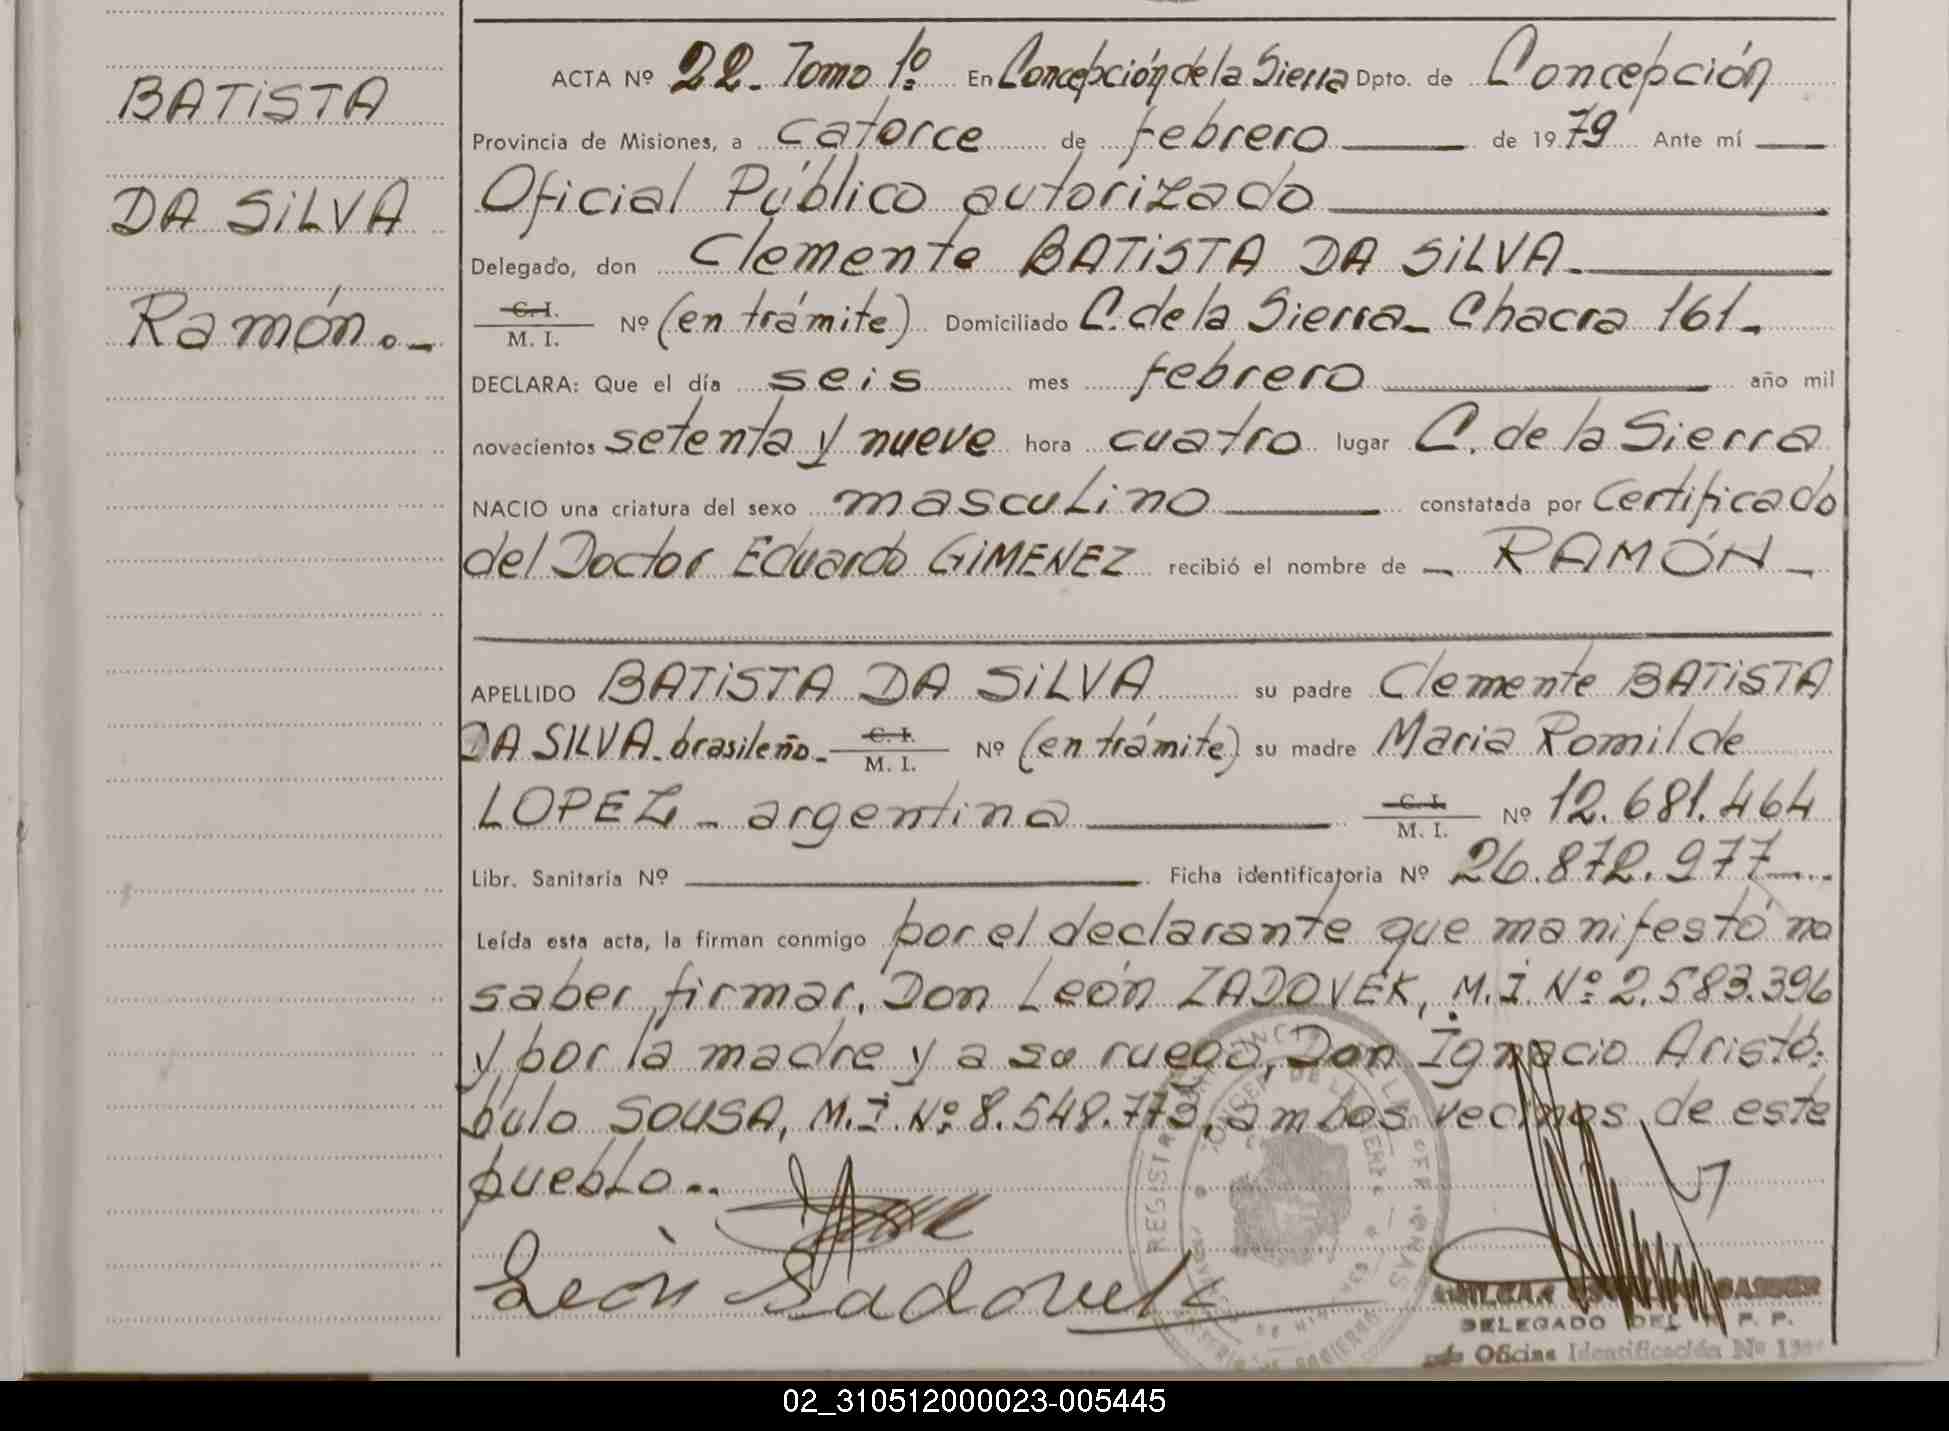 BATISTA
DA SILVA
Ramón.-
ACTA Nº 22- Tomo 1º. En Concepción de la Sierra Dpto. de Concepción
Provincia de Misiones, a catorce de febrero de 1979 Ante mí
Oficial Público autorizado
Delegado, don Clemente BATISTA DA SILVA.
C. I.
M. I. Nº (en trámite) Domiciliado C. de la Sierra_ Chacra 161-
DECLARA: Que el día seis mes febrero año mil
novecientos setenta y nueve hora cuatro lugar C. de la Sierra
NACIO una criatura del sexo masculino constatada por Certificado
del Doctor Eduardo GIMENEZ recibió el nombre de - RAMÓN -
APELLIDO BATISTA DA SILVA su padre Clemente BATISTA
DA SILVA- brasileño- C. I. M. I. Nº (en trámite) su madre Maria Romilde
LOPEZ - argentina C. I. M. I. Nº 12.681.464
Libr. Sanitaria Nº Ficha identificatoria Nº 26.872.977
Leída esta acta, la firman conmigo por el declarante que manifestó no
saber firmar, Don León ZADOVEK, M.I. Nº 2.583.396
y por la madre y a su ruego, Don Ignacio Aristó:
bulo SOUSA, M.I. Nº 8.548.773, ambos vecinos de este
pueblo..
León Sadovek
DELEGADO DEL R. P. P.
Oficina Identificación Nº
02_310512000023-005445